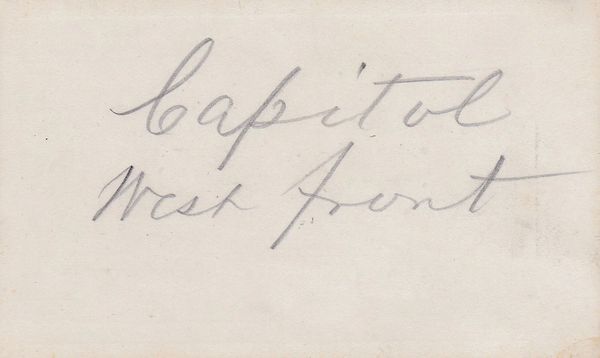 Capitol
West front